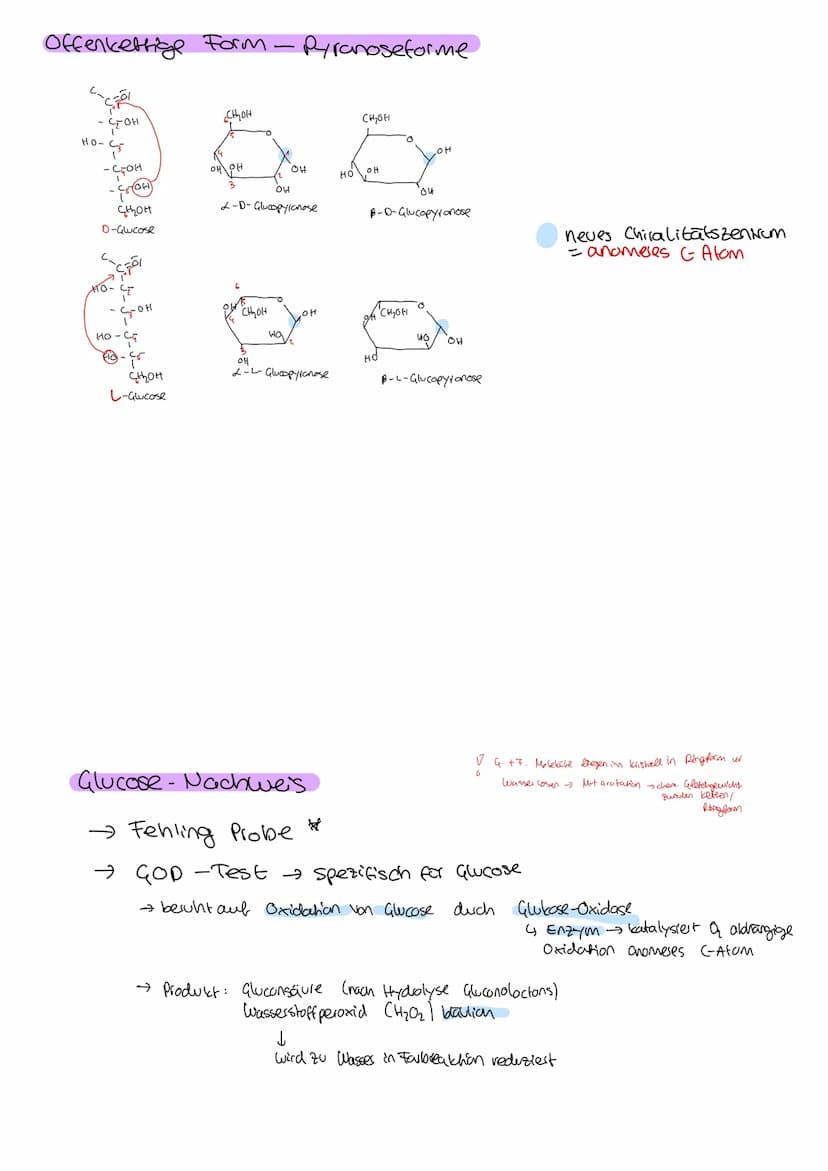 Offenkettige Form – Pyranoseforme
C
C=O|
- C₂-OH
HO- C₃-
- C₄-OH
- C₅-OH
CH₂OH
D-Glucose
CH₂OH
O
OH OH
OH
OH
α-D-Glucopyranose
CH₂OH
O
OH
HO OH
OH
β-D-Glucopyranose
neues Chiralitätszentrum
= anomeres C-Atom
C
C=O|
HO- C₂
- C₃-OH
HO - C₄
HO - C₅
CH₂OH
L-Glucose
6
OH CH₂OH O
OH
HO
OH
α-L-Glucopyranose
O
OH CH₂OH
HO OH
HO
β-L-Glucopyranose
G. + F. Moleküle liegen im Kristall in Ringform vor
Wasser lösen → Mutarotation → chem. Gleichgewicht
zwischen Ketten/
Ringform
Glucose-Nachweis
→ Fehling Probe *
→ GOD-Test → spezifisch für Glucose
→ beruht auf Oxidation von Glucose durch Glukose-Oxidase
↳ Enzym → katalysiert O₂ abhängige
Oxidation anomeres C-Atom
→ Produkt: Gluconsäure (nach Hydrolyse Gluconolactons)
Wasserstoffperoxid (H₂O₂)
↓
wird zu Wasser in Farbreaktion reduziert